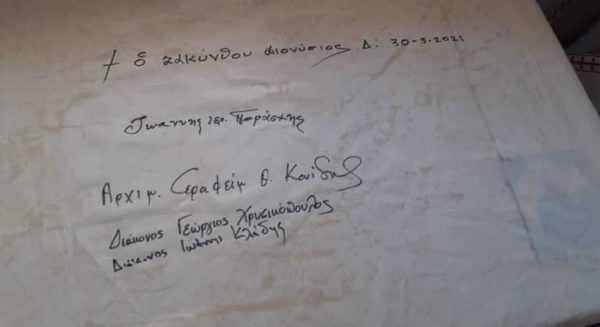 † ὁ Ζακύνθου Διονύσιος Δ: 30-5-2021
Ἰωάννης ἱερ. Παράσχης
Αρχιμ. Σεραφείμ Θ.
Διάκονος Γεώργιος Χρυσικόπουλος
Διάκονος Ιωάννης Κλάδης